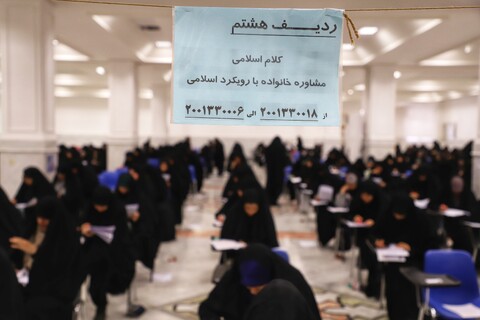 ردیف هشتم
کلام اسلامی
مشاوره خانواده با رویکرد اسلامی
از ۲۰۰۱۳۳۰۰۱۸ الی ۲۰۰۱۳۳۰۰۰۶